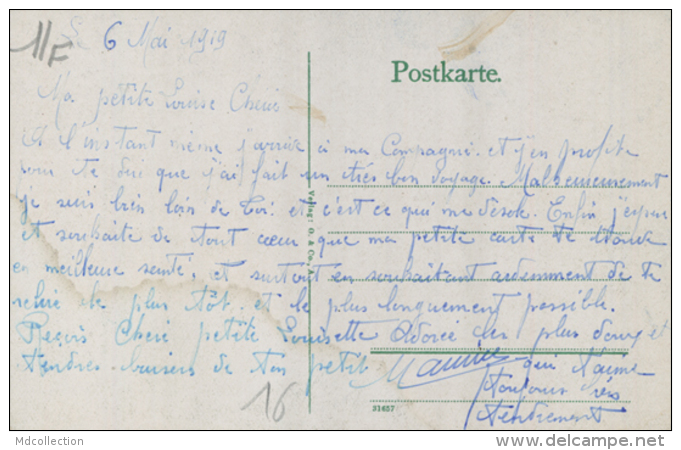 11F
6 Mai 1919
Postkarte.
Ma petite Louise Cherie
A l'instant même j'arrive à ma Compagnie. et j'en profite
pour te dire que j'ai fait un très bon voyage. Malheureusement
je suis bien loin de toi. et c'est ce qui me désole. Enfin j'espère
et souhaite de tout cœur que ma petite carte te trouve
en meilleure santé, et surtout en souhaitant ardemment de te
relire le plus tôt. et le plus longuement possible.
Reçois Cherie petite Louisette Adorée les plus doux et
tendres baisers de ton petit Maurice qui t'aime
toujours très
tendrement
16
31457
Mdcollection
www.delcampe.net